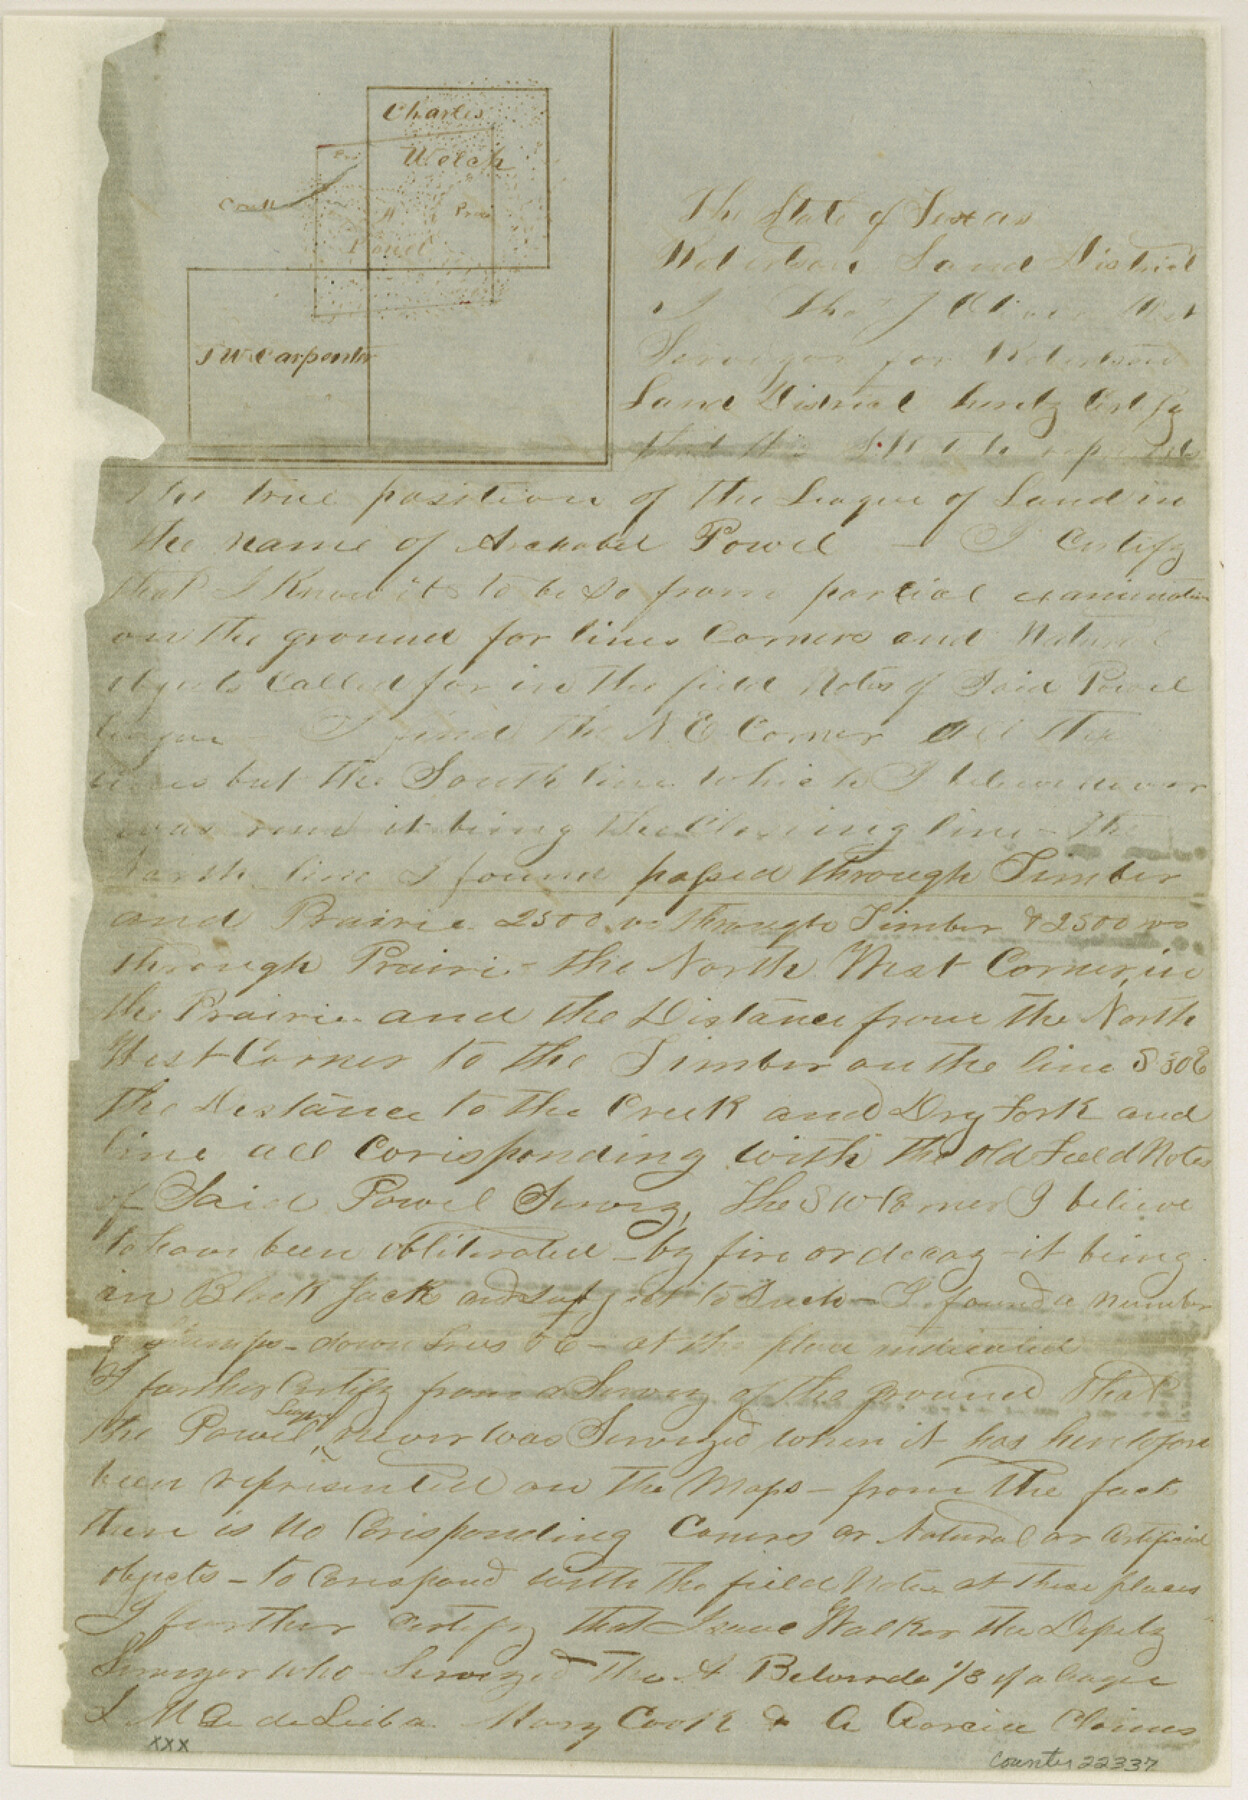 Charles
Welch
Pra
Creek
A
Prai
Powel
J W Carpenter
The State of Texas
Robertson Land District
I Tho J Dist
Surveyor for Robertson
Land District hereby Certify
that this represents
the true position of the League of Land in
the name of Archabel Powel — I Certify
that I Know it to be so from parcial examination
on the ground for lines Corners and Natural
objects Called for in the field Notes of Said Powel
league I find the N. E Corner all the
lines but the South line which I believe never
was run it being the Closeing line — The
North line I found passed through Timber
and Prairie 2500 vs through Timber & 2500 vs
through Prairie – the North West Corner, in
the Prairie and the Distance from the North
West Corner to the Timber on the line S 30 E
the Distance to the Creek and Dry Fork and
line all Corisponding with the old Field Notes
of Said Powel Survey, The S W Corner I believe
to have been obliterated – by fire or decay – it being
in Black Jack and subject to Such – I found a number
of Stumps – down trees &c – at the place indicated
I further Certify from a Survey of the ground that
the Powel League never was Surveyed when it has heretofore
been represented on the Maps – from the fact
there is No Corisponding Coners or Natural or Artificial
objects – to Corespond with the field Notes at these places
I further certify that Isaac Walker the Depety
Surveyor who Surveyed the A 1/3 of a league
J. M A de Leiba Mary Cook & A Garcia Claims
xxx
counter 22337